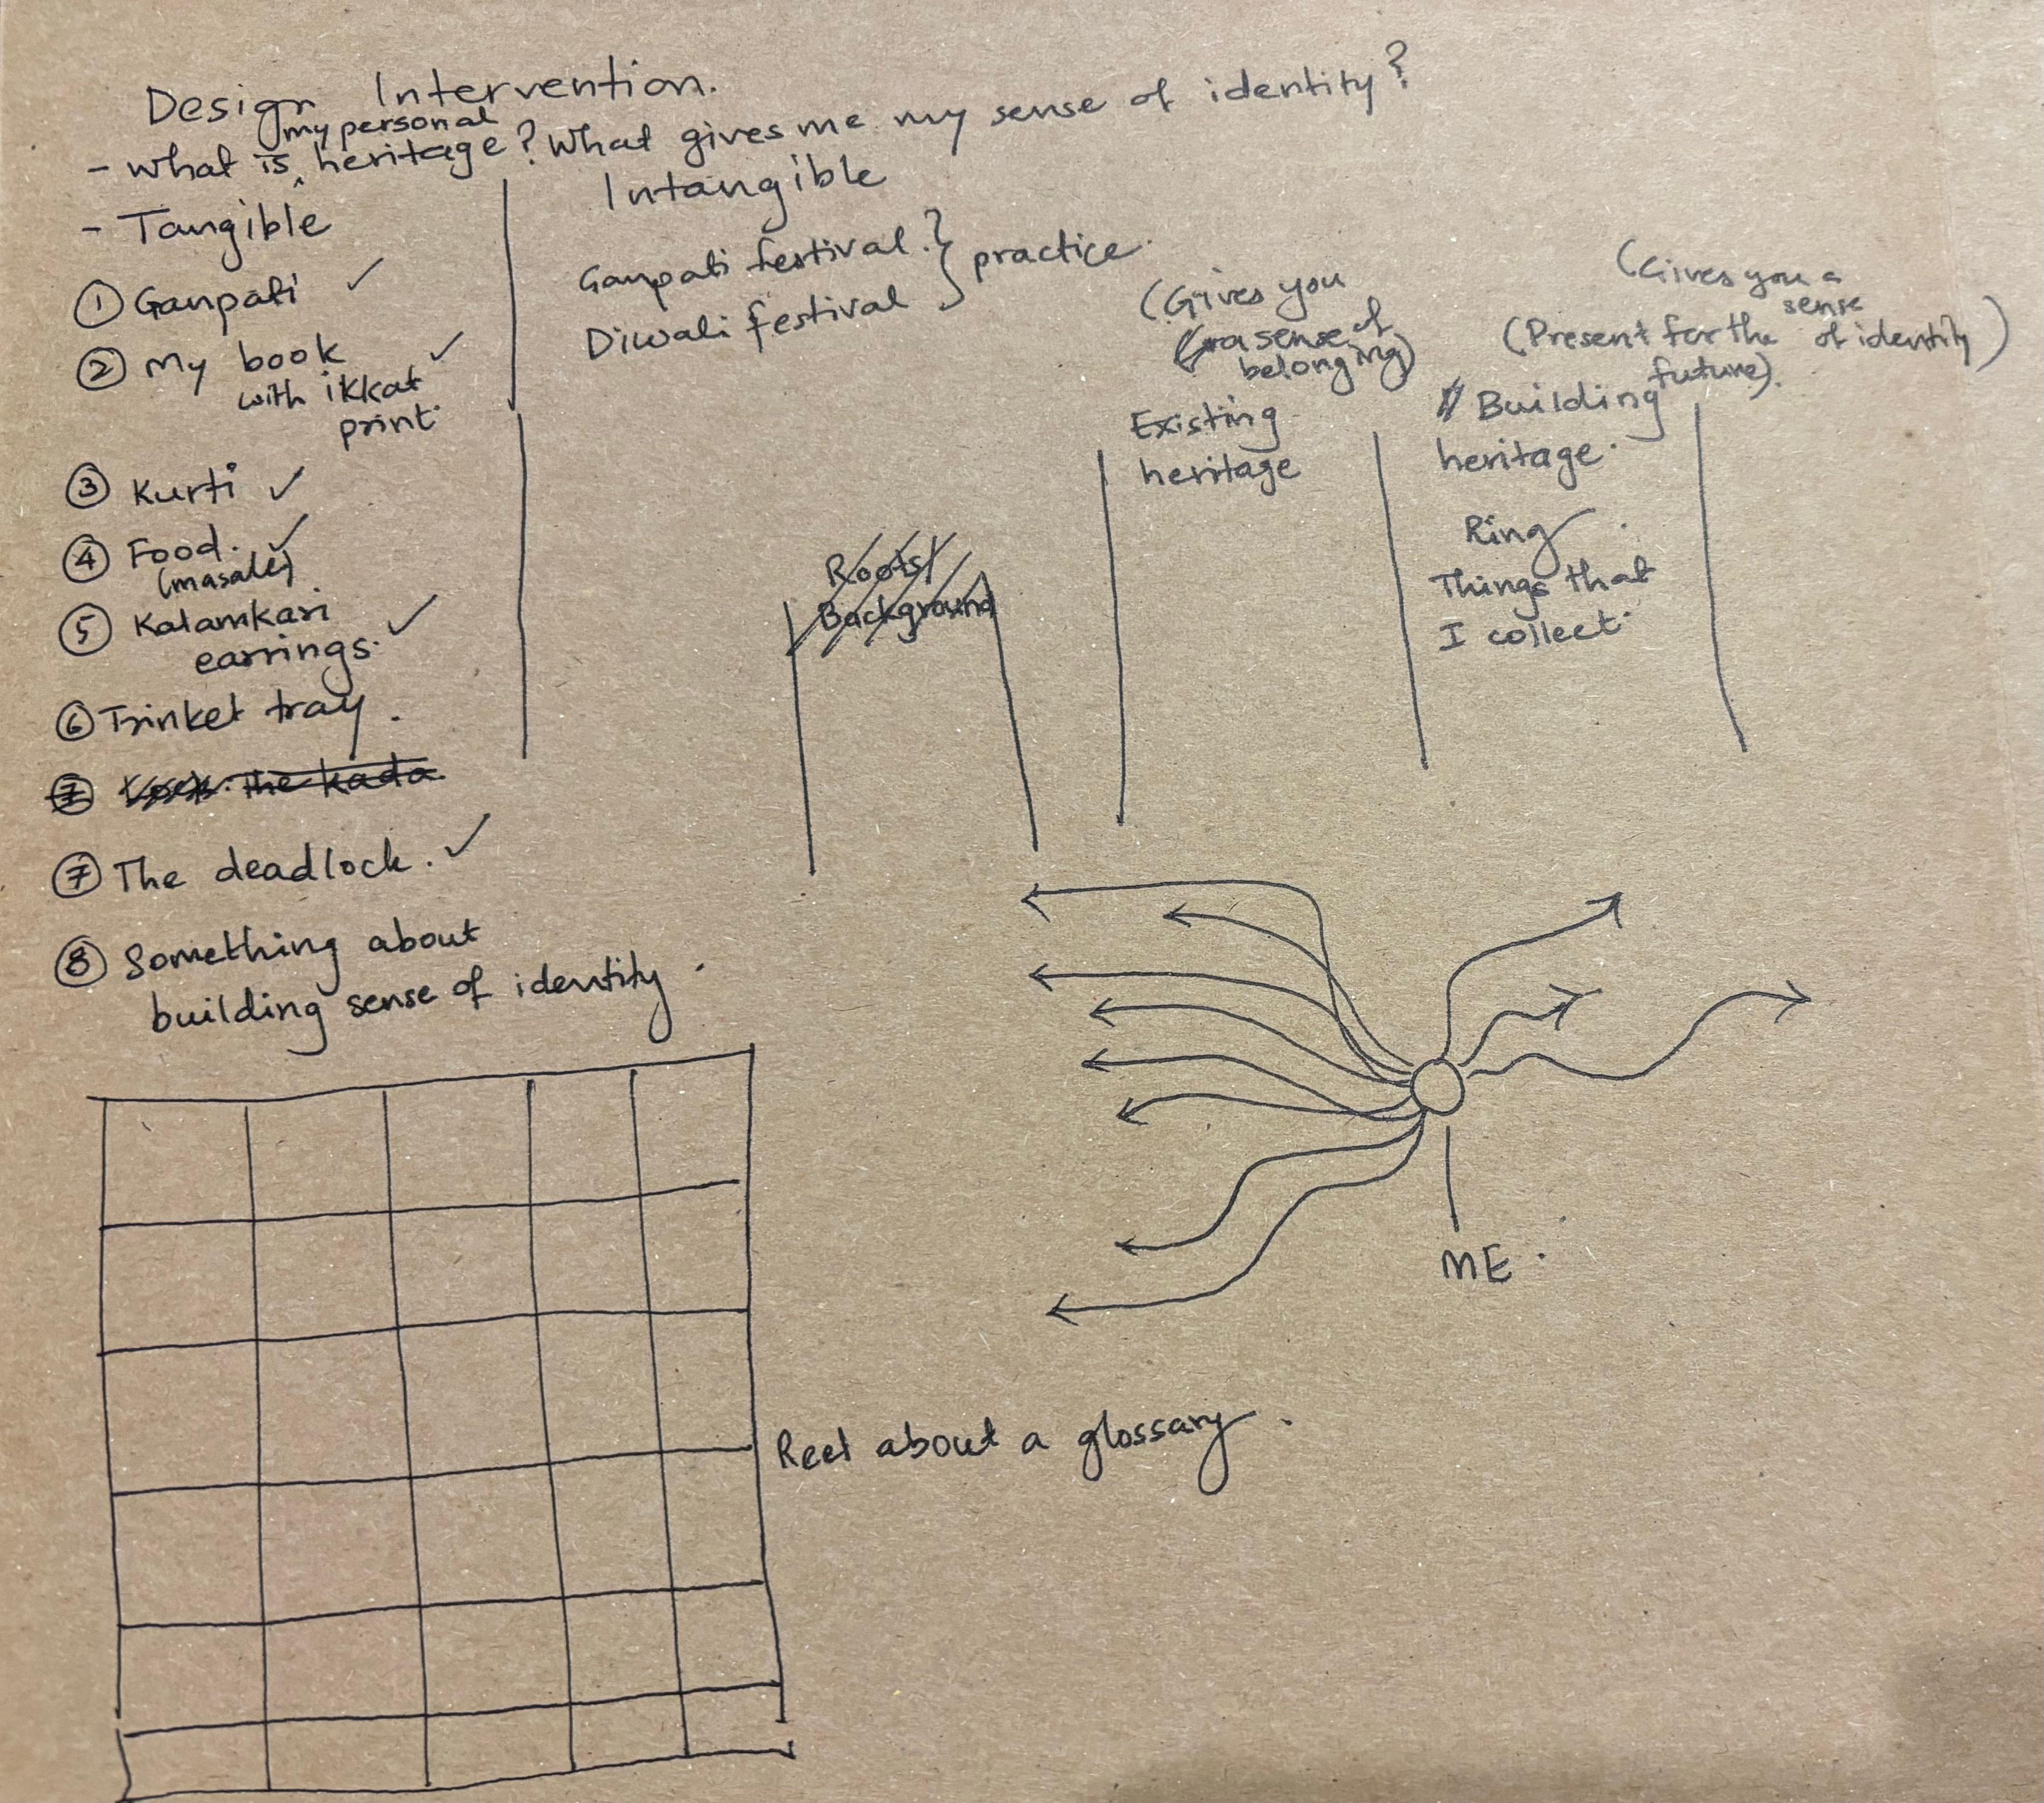 Design Intervention.
- What is my personal heritage? What gives me my sense of identity?
- Tangible
① Ganpati ✓
② My book ✓
with ikkat
print.
③ Kurti ✓
④ Food. ✓
(masale)
⑤ Kalamkari
earrings. ✓
⑥ Trinket tray.
⑦ The kada
⑦ The deadlock. ✓
⑧ Something about
building sense of identity.
Intangible
Ganpati festival.
Diwali festival
practice.
Roots/
Background
(Gives you
a sense of
belonging)
Existing
heritage
(Gives you a
sense
of identity)
(Present for the
future).
Building
heritage.
Ring
Things that
I collect.
ME.
Reel about a glossary.